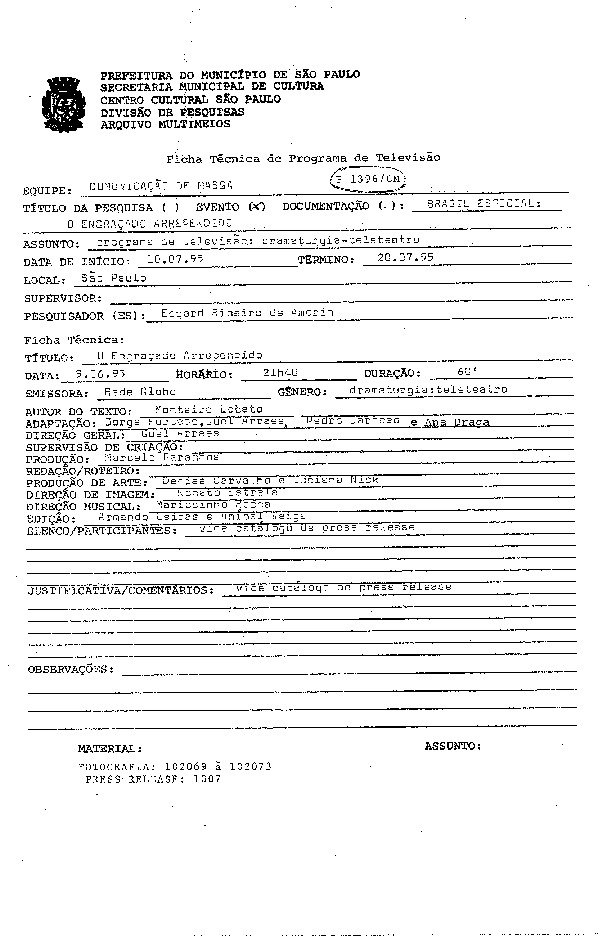 PREFEITURA DO MUNICÍPIO DE SÃO PAULO
SECRETARIA MUNICIPAL DE CULTURA
CENTRO CULTURAL SÃO PAULO
DIVISÃO DE PESQUISAS
ARQUIVO MULTIMEIOS
Ficha Técnica de Programa de Televisão
1396/CM
EQUIPE: COMUNICAÇÃO DE MASSA
TÍTULO DA PESQUISA ( ) EVENTO (x) DOCUMENTAÇÃO ( ): BRASIL ESPECIAL:
O ENGRAÇADO ARREPENDIDO
ASSUNTO: programa de televisão: dramaturgia-teleteatro
DATA DE INÍCIO: 10.07.95 TÉRMINO: 20.07.95
LOCAL: São Paulo
SUPERVISOR:
PESQUISADOR (ES): Edgard Ribeiro de Amorim
Ficha Técnica:
TÍTULO: O Engraçado Arrependido
DATA: 9.06.95 HORÁRIO: 21h40 DURAÇÃO: 60'
EMISSORA: Rede Globo GÊNERO: dramaturgia:teleteatro
AUTOR DO TEXTO: Monteiro Lobato
ADAPTAÇÃO: Jorge Furtado, Guel Arraes, Pedro Cardoso e Ana Braga
DIREÇÃO GERAL: Guel Arraes
SUPERVISÃO DE CRIAÇÃO:
PRODUÇÃO: Marcelo
REDAÇÃO/ROTEIRO:
PRODUÇÃO DE ARTE: Denise Carvalho e Nick
DIREÇÃO DE IMAGEM:
DIREÇÃO MUSICAL: Mariozinho Rocha
EDIÇÃO: Armando e
ELENCO/PARTICIPANTES: vide catálogo de press release
JUSTIFICATIVA/COMENTÁRIOS: vide catálogo de press release
OBSERVAÇÕES:
MATERIAL: ASSUNTO:
FOTOGRAFIA: 102069 à 102073
PRESS RELEASE: 1007